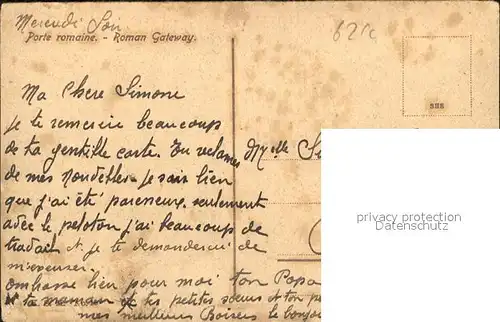 Mercredi Soir
Porte romaine. - Roman Gateway.
62
Ma Chere Simone
je te remercie beaucoup
de ta gentille carte. Tu reclames
de mes nouvelles. Je sais bien
que j'ai été pareseuse. seulement
avec le peloton j'ai beaucoup de
travail je te demanderai de
m'excuser.
embrasse bien pour moi ton Papa
ta maman tes petites sœurs ton
mes meilleurs Baisers le bonjour
Mlle
privacy protection
Datenschutz